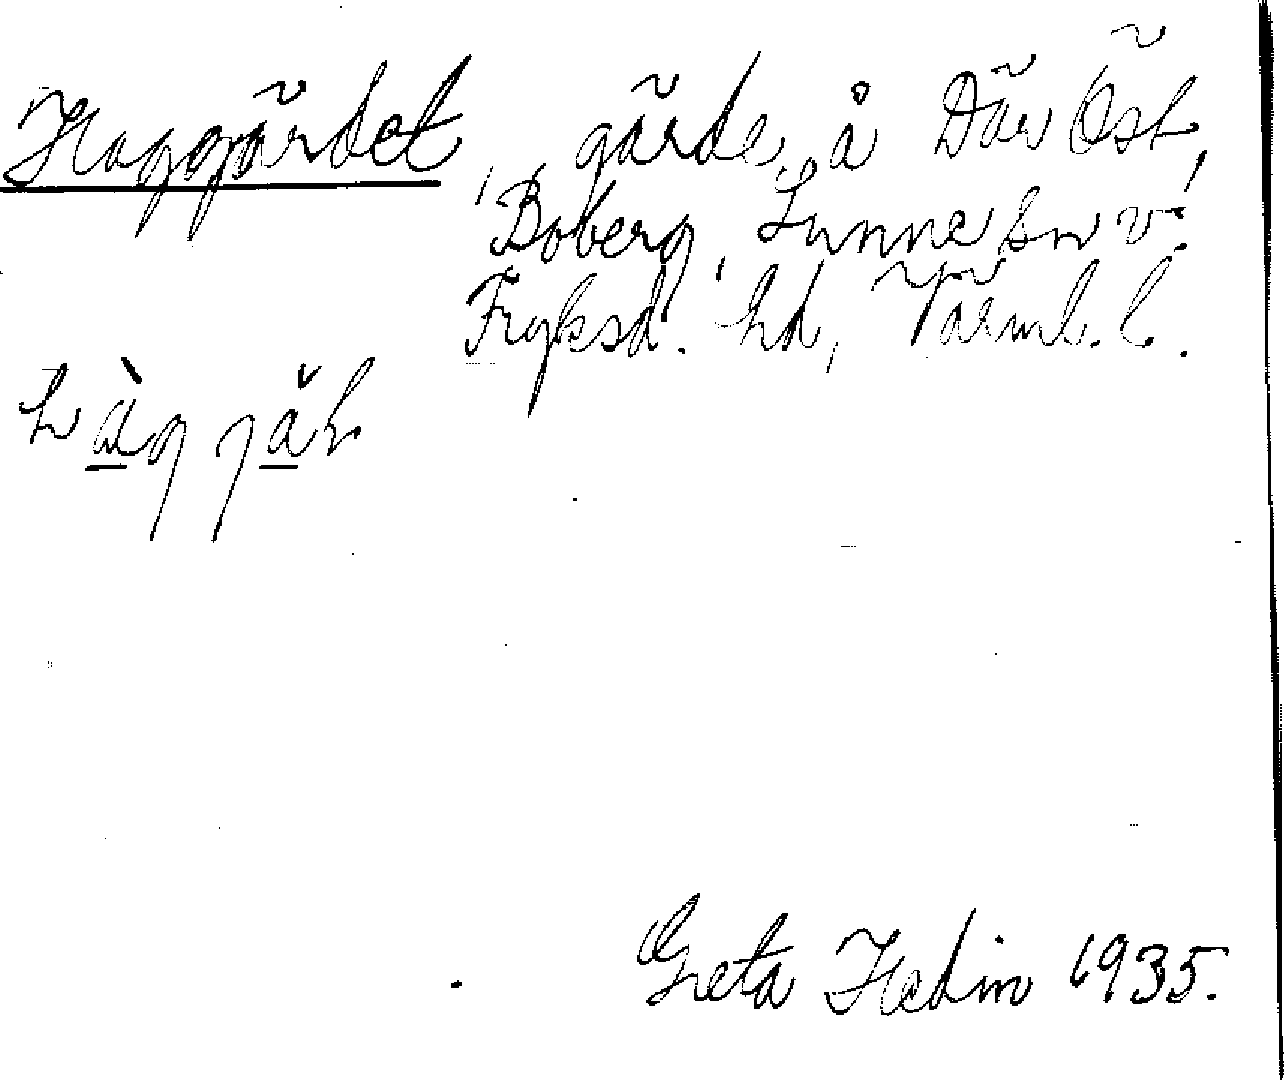 Haggärdet, gärde, å Där Öst,
Boberg, Sunne sn v.
Fryksd. hd, Värml. l.
hàg jăḷ
Greta Hedin 1935.